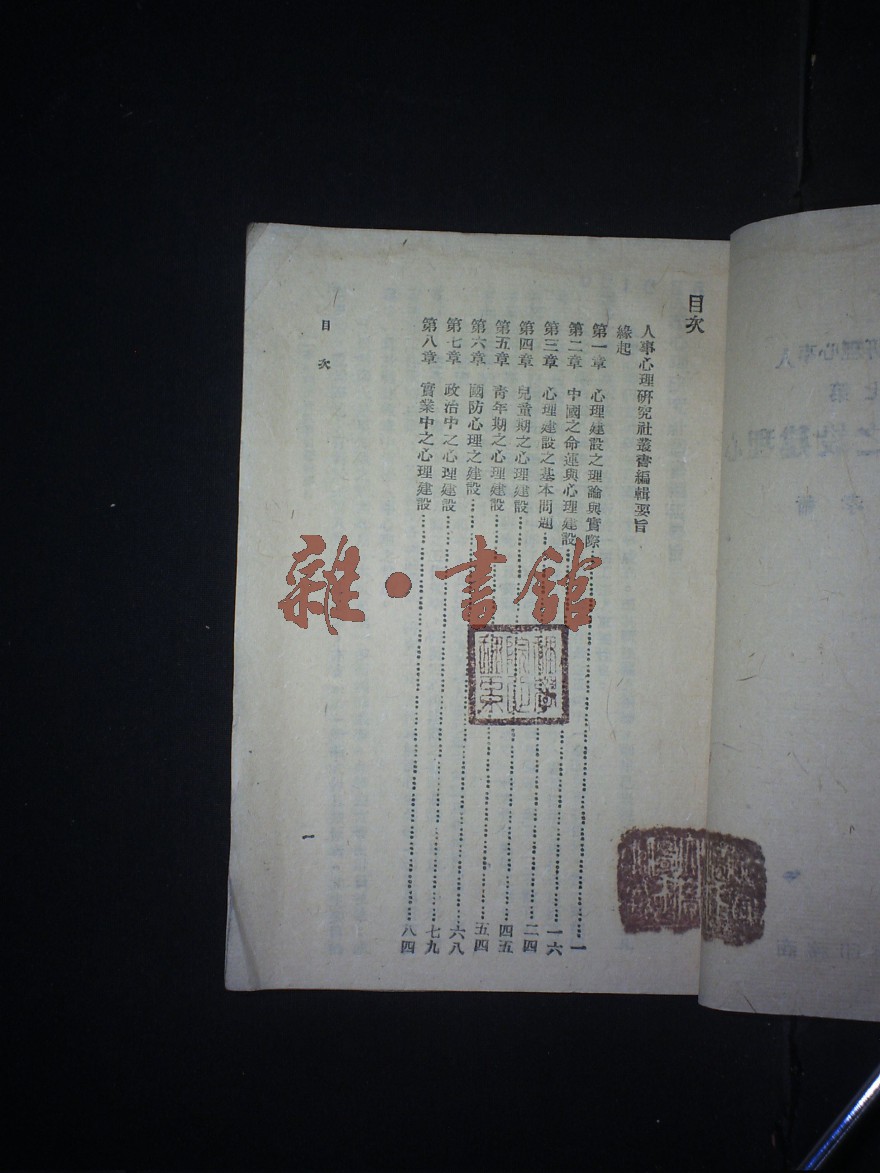 目次
人事心理研究社叢書編輯要旨
緣起
第一章　心理建設之理論與實際……一
第二章　中國之命運與心理建設……一六
第三章　心理建設之基本問題……二四
第四章　兒童期之心理建設……四五
第五章　青年期之心理建設……五四
第六章　國防心理之建設……六八
第七章　政治中之心理建設……七九
第八章　實業中之心理建設……八四
目次
一
雜·書館